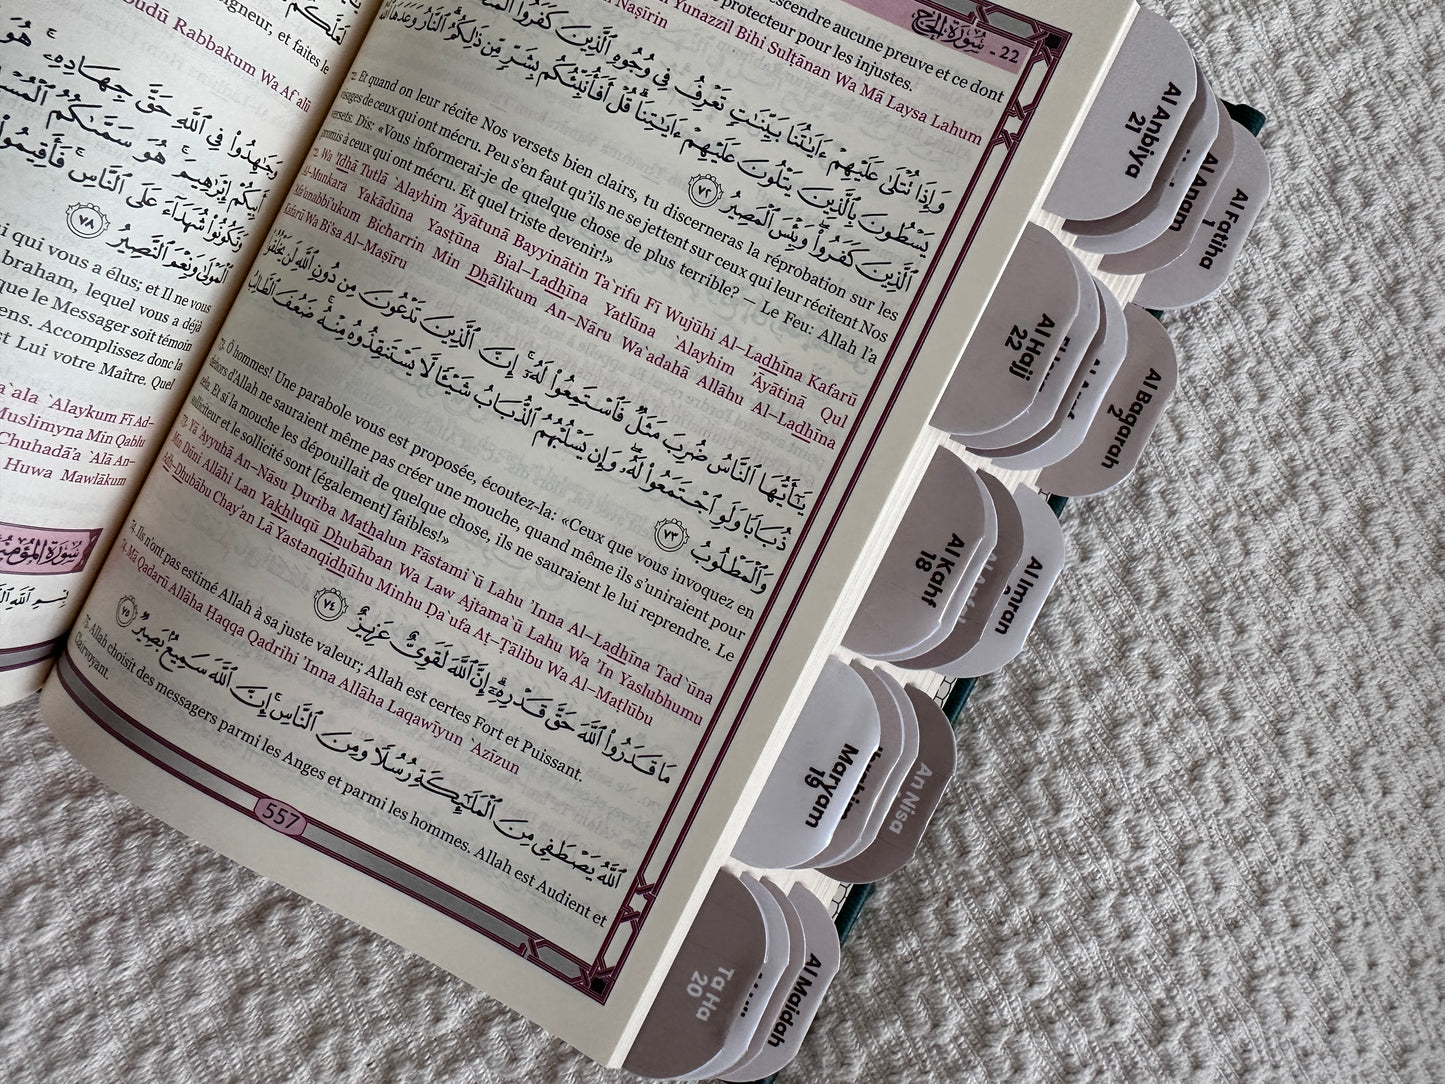 oudū Rabbakum Wa Af`alū
وَجَٰهِدُوا۟ فِى ٱللَّهِ حَقَّ جِهَادِهِۦ ۚ هُوَ
أَبِيكُمْ إِبْرَٰهِيمَ ۚ هُوَ سَمَّىٰكُمُ
وَتَكُونُوا۟ شُهَدَآءَ عَلَى ٱلنَّاسِ ۚ فَأَقِيمُوا۟
ٱلْمَوْلَىٰ وَنِعْمَ ٱلنَّصِيرُ ٧٨
ui qui vous a élus; et Il ne vous
Abraham, lequel vous a déjà
que le Messager soit témoin
ens. Accomplissez donc la
st Lui votre Maître. Quel
a`ala `Alaykum Fī Ad–
Muslimyna Min Qablu
Chuhadā'a `Alā An–
Huwa Mawlākum
سُورَةُ المُؤْمِنُ
22 - سُورَةُ الحَجّ
escendre aucune preuve et ce dont
protecteur pour les injustes.
Yunazzil Bihi Sulţānan Wa Mā Laysa Lahum
Naşīrin
وَإِذَا تُتْلَىٰ عَلَيْهِمْ ءَايَٰتُنَا بَيِّنَٰتٍ تَعْرِفُ فِى وُجُوهِ ٱلَّذِينَ كَفَرُوا۟
يَسْطُونَ بِٱلَّذِينَ يَتْلُونَ عَلَيْهِمْ ءَايَٰتِنَا ۗ قُلْ أَفَأُنَبِّئُكُم بِشَرٍّ مِّن ذَٰلِكُمُ ۗ ٱلنَّارُ وَعَدَهَا ٱللَّهُ
ٱلَّذِينَ كَفَرُوا۟ ۖ وَبِئْسَ ٱلْمَصِيرُ ٧٢
72. Et quand on leur récite Nos versets bien clairs, tu discerneras la réprobation sur les
visages de ceux qui ont mécru. Peu s'en faut qu'ils ne se jettent sur ceux qui leur récitent Nos
versets. Dis: «Vous informerai-je de quelque chose de plus terrible? – Le Feu: Allah l'a
promis à ceux qui ont mécru. Et quel triste devenir!»
72. Wa 'Idhā Tutlā `Alayhim 'Āyātunā Bayyinātin Ta`rifu Fī Wujūhi Al–Ladhīna Kafarū
Al–Munkara Yakādūna Yasţūna Bial–Ladhīna Yatlūna `Alayhim 'Āyātinā Qul
'Afa'unabbi'ukum Bicharrin Min Dhālikum An–Nāru Wa`adahā Allāhu Al–Ladhīna
Kafarū Wa Bi'sa Al–Maşīru
يَٰٓأَيُّهَا ٱلنَّاسُ ضُرِبَ مَثَلٌ فَٱسْتَمِعُوا۟ لَهُۥٓ ۚ إِنَّ ٱلَّذِينَ تَدْعُونَ مِن دُونِ ٱللَّهِ لَن يَخْلُقُوا۟
ذُبَابًا وَلَوِ ٱجْتَمَعُوا۟ لَهُۥ ۖ وَإِن يَسْلُبْهُمُ ٱلذُّبَابُ شَيْـًٔا لَّا يَسْتَنقِذُوهُ مِنْهُ ۚ ضَعُفَ ٱلطَّالِبُ
وَٱلْمَطْلُوبُ ٧٣
73. Ô hommes! Une parabole vous est proposée, écoutez-la: «Ceux que vous invoquez en
dehors d'Allah ne sauraient même pas créer une mouche, quand même ils s'uniraient pour
cela. Et si la mouche les dépouillait de quelque chose, ils ne sauraient le lui reprendre. Le
solliciteur et le sollicité sont [également] faibles!»
73. Yā 'Ayyuhā An–Nāsu Đuriba Mathalun Fāstami`ū Lahu 'Inna Al–Ladhīna Tad`ūna
Min Dūni Allāhi Lan Yakhluqū Dhubāban Wa Law Ajtama`ū Lahu Wa 'In Yaslubhumu
Adh–Dhubābu Chay'an Lā Yastanqidhūhu Minhu Đa`ufa Aţ–Ţālibu Wa Al–Maţlūbu
مَا قَدَرُوا۟ ٱللَّهَ حَقَّ قَدْرِهِۦٓ ۗ إِنَّ ٱللَّهَ لَقَوِىٌّ عَزِيزٌ ٧٤
74. Ils n'ont pas estimé Allah à sa juste valeur; Allah est certes Fort et Puissant.
74. Mā Qadarū Allāha Haqqa Qadrihi 'Inna Allāha Laqawīyun `Azīzun
ٱللَّهُ يَصْطَفِى مِنَ ٱلْمَلَٰٓئِكَةِ رُسُلًا وَمِنَ ٱلنَّاسِ ۚ إِنَّ ٱللَّهَ سَمِيعٌۢ بَصِيرٌ ٧٥
75. Allah choisit des messagers parmi les Anges et parmi les hommes. Allah est Audient et
Clairvoyant.
557
Al Anbiya
21
Al Anam
Al Fatiha
1
Al Hajj
22
Al Baqarah
2
Al Kahf
18
Al Imran
Maryam
19
An Nisa
Ta Ha
20
Al Maidah